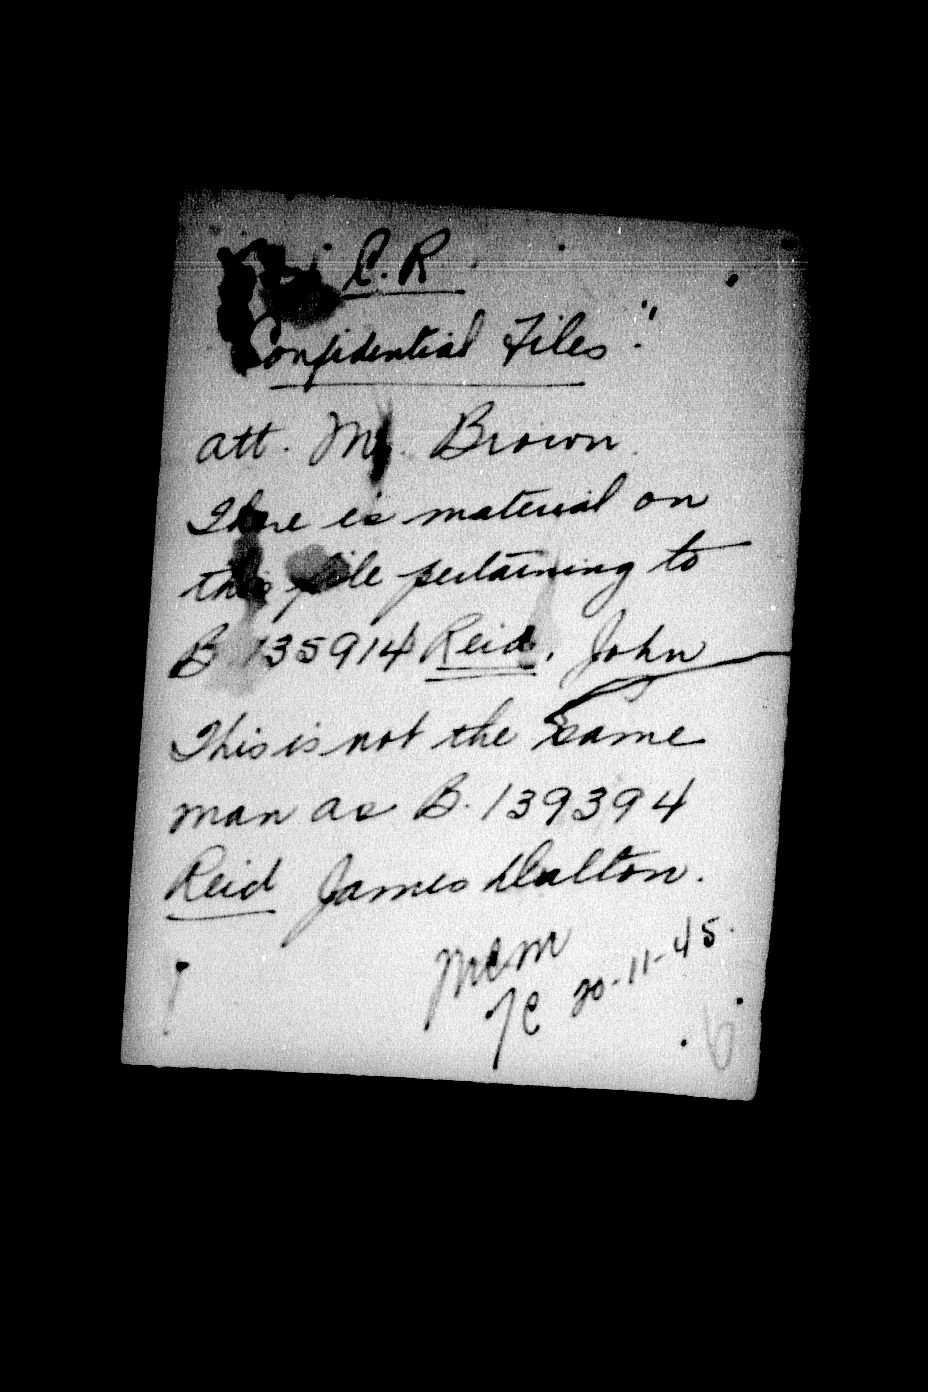 C.R
Confidential Files."
att. Mr. Brown.
There is material on
this file pertaining to
B 135914 Reid, John
This is not the same
man as B. 139394
Reid James Dalton.
McM
20-11-45.
6